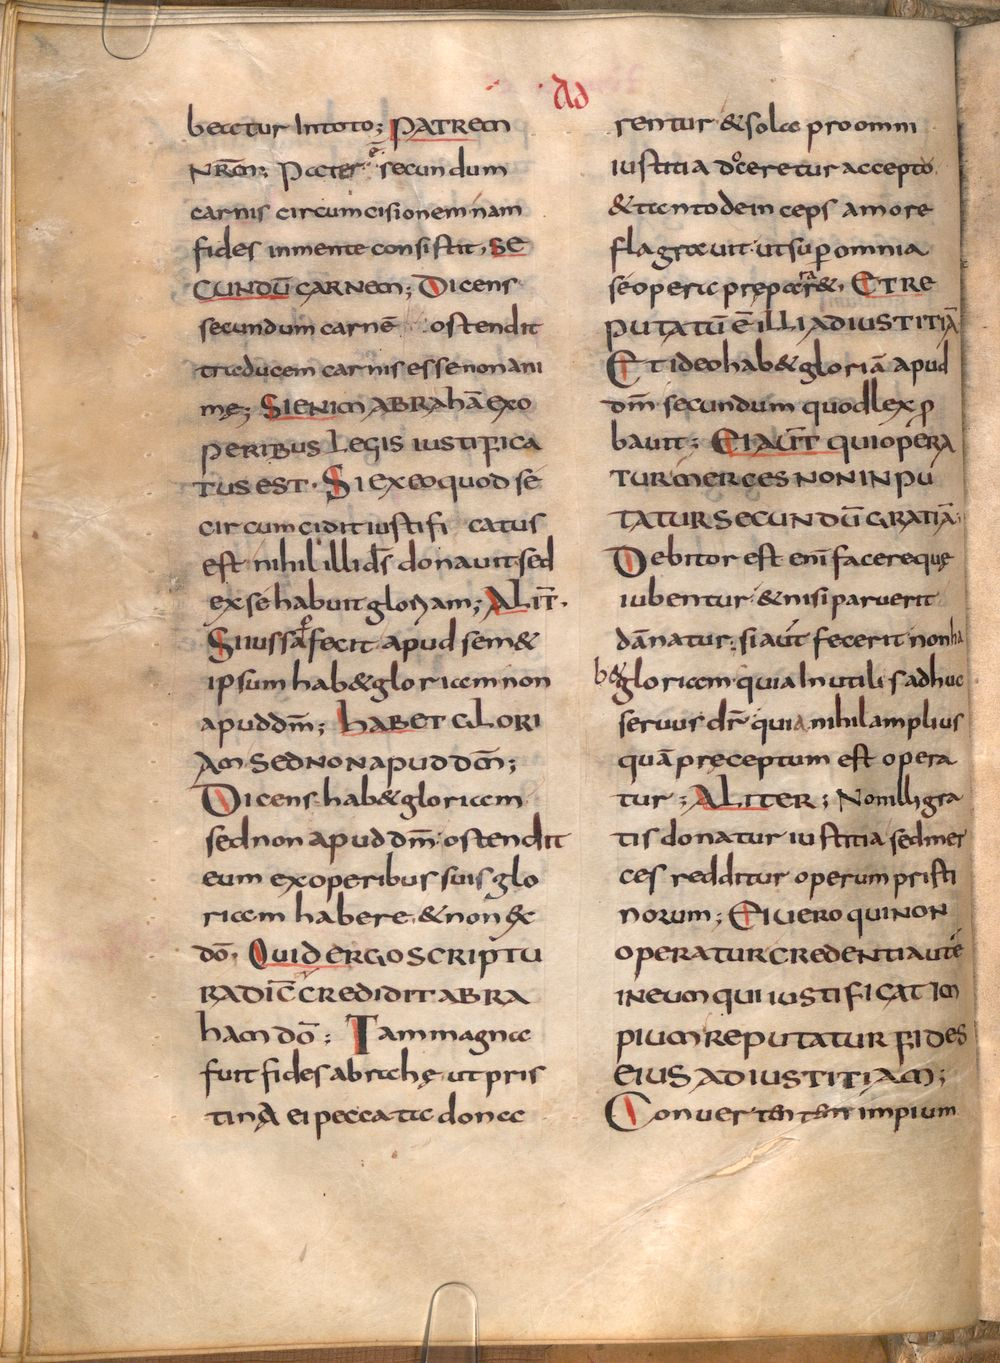 Ad
beatur Intoto; PATREM
NRM; Pater ē secundum
carnis circumcisionem nam
fides inmente consistit, SE
CUNDŪ CARNEM; Dicens
secundum carnē ostendit
traducem carnis esse non ani
mę; SI ENIM ABRAHĀ EXO
PERIBUS LEGIS IUSTIFICA
TUS EST. SI EX EO QUOD SE
circumcidit iustifi catus
est nihil illi d̄s donauit sed
ex se habuit gloriam; ALIT̄.
Si iussa fecit apud sem&
ipsum hab& gloriam non
apud dm̄; HABET GLORI
AM SED NON APUD DM̄;
Dicens hab& gloriam
sed non apud dm̄ ostendit
eum ex operibus suis glo
riam habere, & non ex
dō. QUID ERGO SCRIPTU
RA DIC̄ CREDIDIT ABRA
HAM DŌ; Tam magna
fuit fides abrahę ut pris
tinA ei peccata dona
rentur & sola pro omni
iustitia doceretur accepto
& tanto deinceps amore
flagrauit ut sup omnia
se opera pręparar&, ET RE
PUTATŪ Ē ILLI AD IUSTITIĀ
Et ideo hab& gloriā apud
dm̄ secundum quod lex p
bauit; EI AUT̄ QUI OPERA
TUR MERCES NON INPU
TATUR SECUNDŪ GRATIĀ.
Debitor est enī facere quę
iubentur & nisi paruerit
dānatur; si aut̄ fecerit non ha
b& gloriam quia Inutilis adhuc
seruus dr̄ quia nihil amplius
quā pręceptum est opera
tur; ALITER; Non illi gra
tis donatur iustitia sed mer
ces redditur operum pristi
norum; EI UERO QUI NON
OPERATUR CREDENTI AUTE
IN EUM QUI IUSTIFICAT IM
PIUM REPUTATUR FIDES
EIUS AD IUSTITIAM;
Conuertentem impium